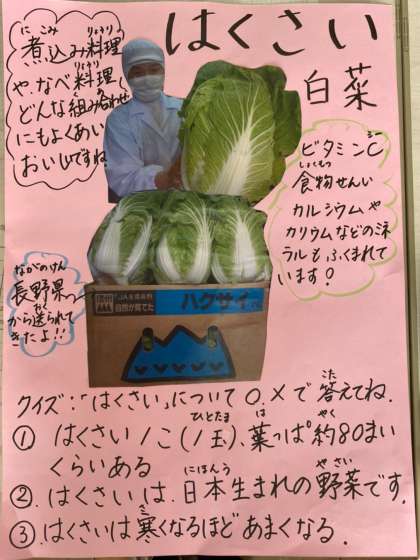 はくさい
白菜
にこみ りょうり
煮込み料理
りょうり
や、なべ料理、
く あ
どんな組み合わせ
にもよくあい
おいしいですね。
ビタミンC
しょくもつ
食物せんい
カルシウムや
カリウムなどのミネ
ラルもふくまれて
います!
ながのけん
長野県
から送られて
きたよ!!
信州
JA全農長野
自然が育てた
ハクサイ
クイズ:「はくさい」について○、×で答えてね。
こた
ひとたま は やく
① はくさい1こ(1玉)、葉っぱ約80まい
くらいある
にほんう やさい
②. はくさいは、日本生まれの野菜です。
③. はくさいは寒くなるほどあまくなる。